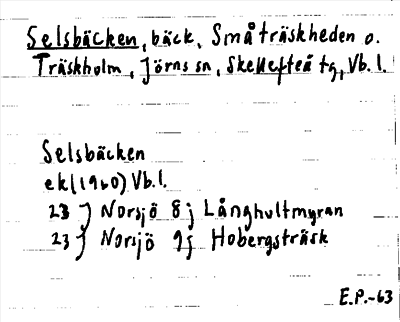 Selsbäcken, bäck, Småträskheden o.
Träskholm, Jörns sn, Skellefteå tg, Vb.l.
Selsbäcken
ek(1960) Vb.l.
23 J Norsjö 8j Långhultmyran
23 J Norsjö 9j Hobergsträsk
E.P.-63